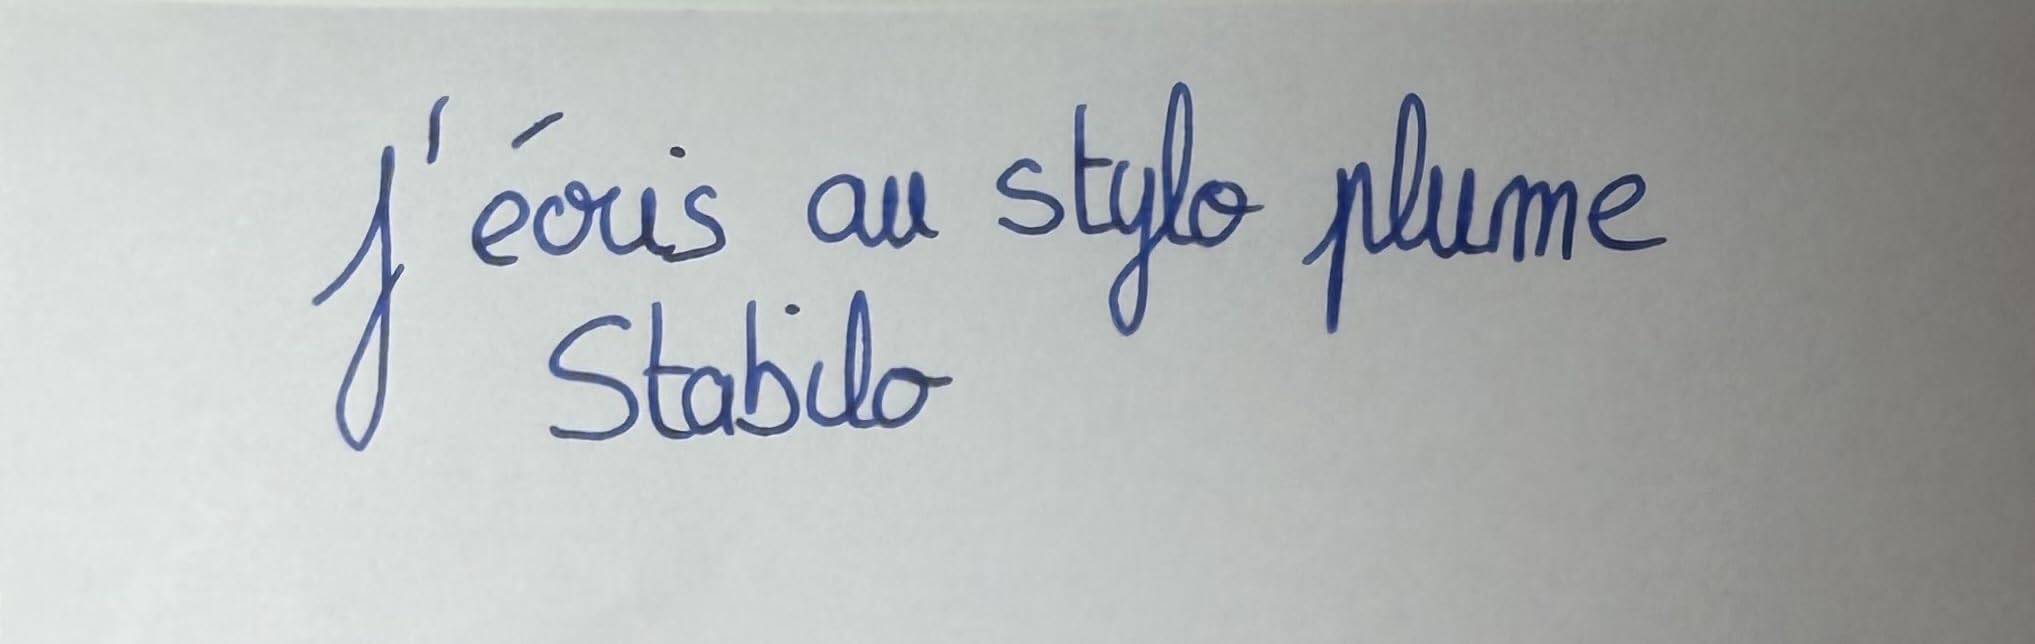 j'écris au stylo plume
Stabilo